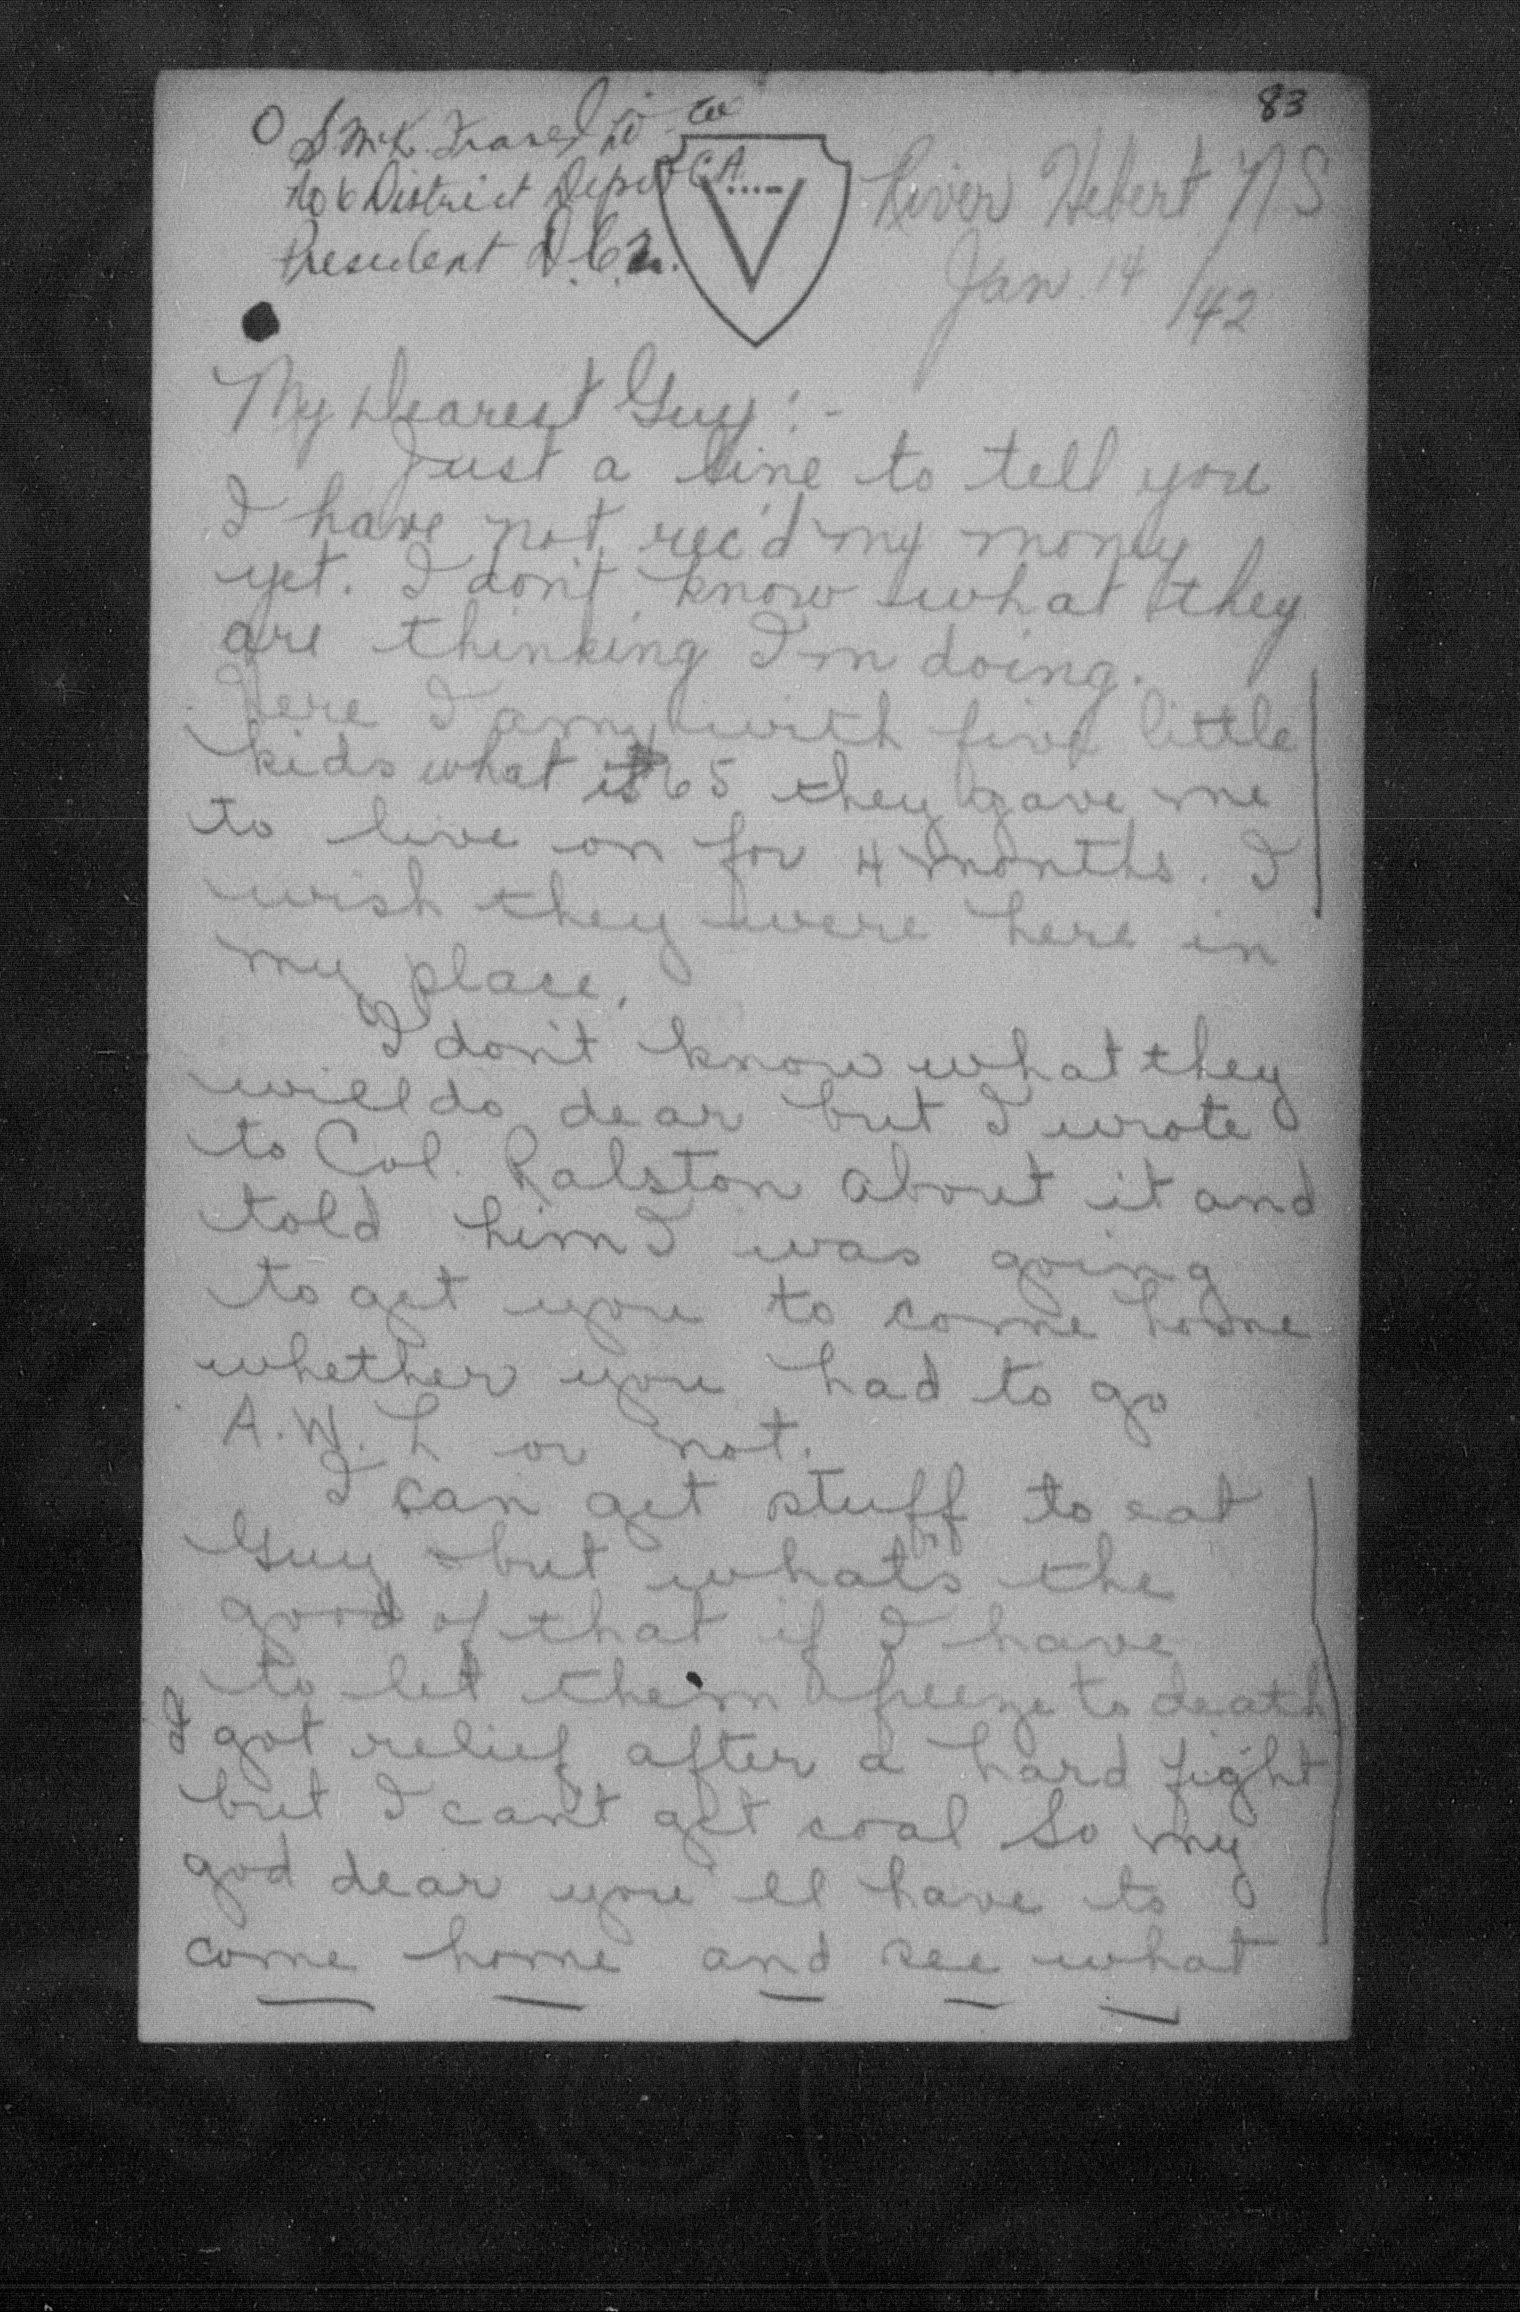 83
No 6 District Depot C.A.
President D.C.M.
V
River Hebert NS
Jan 14/42
My Dearest Guy:-
Just a line to tell you
I have not rec'd my money
yet. I don't know what they
are thinking I'm doing.
Here I am with five little
kids what is $65 they gave me
to live on for 4 months. I
wish they were here in
my place.
I don't know what they
will do dear but I wrote
to Col. Ralston about it and
told him I was going
to get you to come home
whether you had to go
A.W.L or not.
I can get stuff to eat
Guy but what's the
good of that if I have
to let them freeze to death
I got relief after a hard fight
but I can't get coal So my
god dear you'll have to
come home and see what